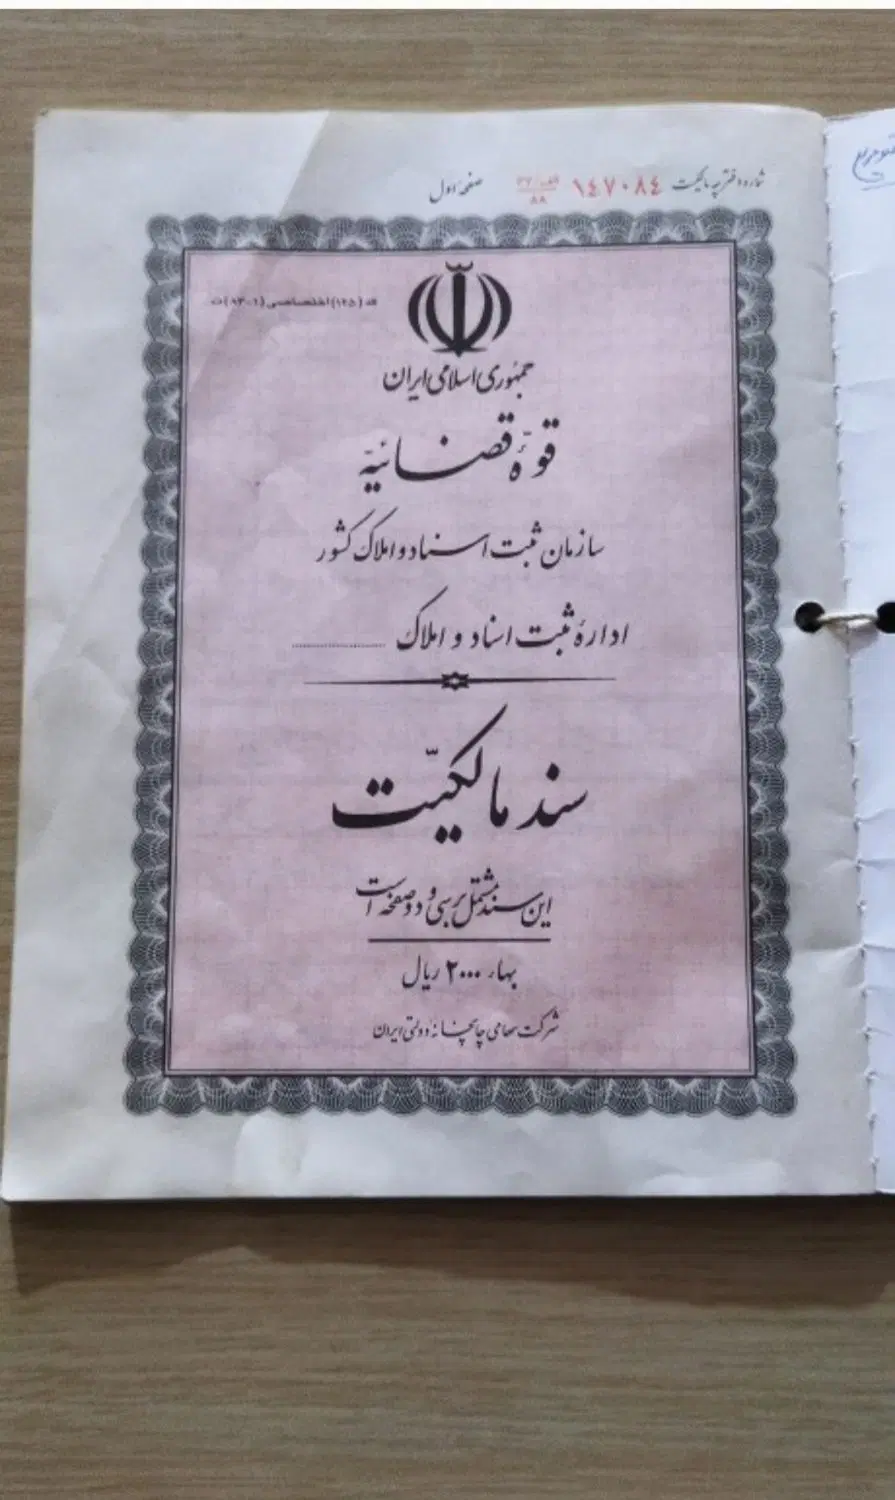 شماره دفترچه مالکیت ۱٤۷۰۸٤ الف/۳۳ ۸۸ صفحه اول
(۱۲۵) اختصاصی
جمهوری اسلامی ایران
قوّهٔ قضائیّه
سازمان ثبت اسناد و املاک کشور
ادارهٔ ثبت اسناد و املاک ..............
سند مالکیّت
این سند مشتمل بر سی و دو صفحه است
بهاء ۲۰۰۰ ریال
شرکت سهامی چاپخانه دولتی ایران